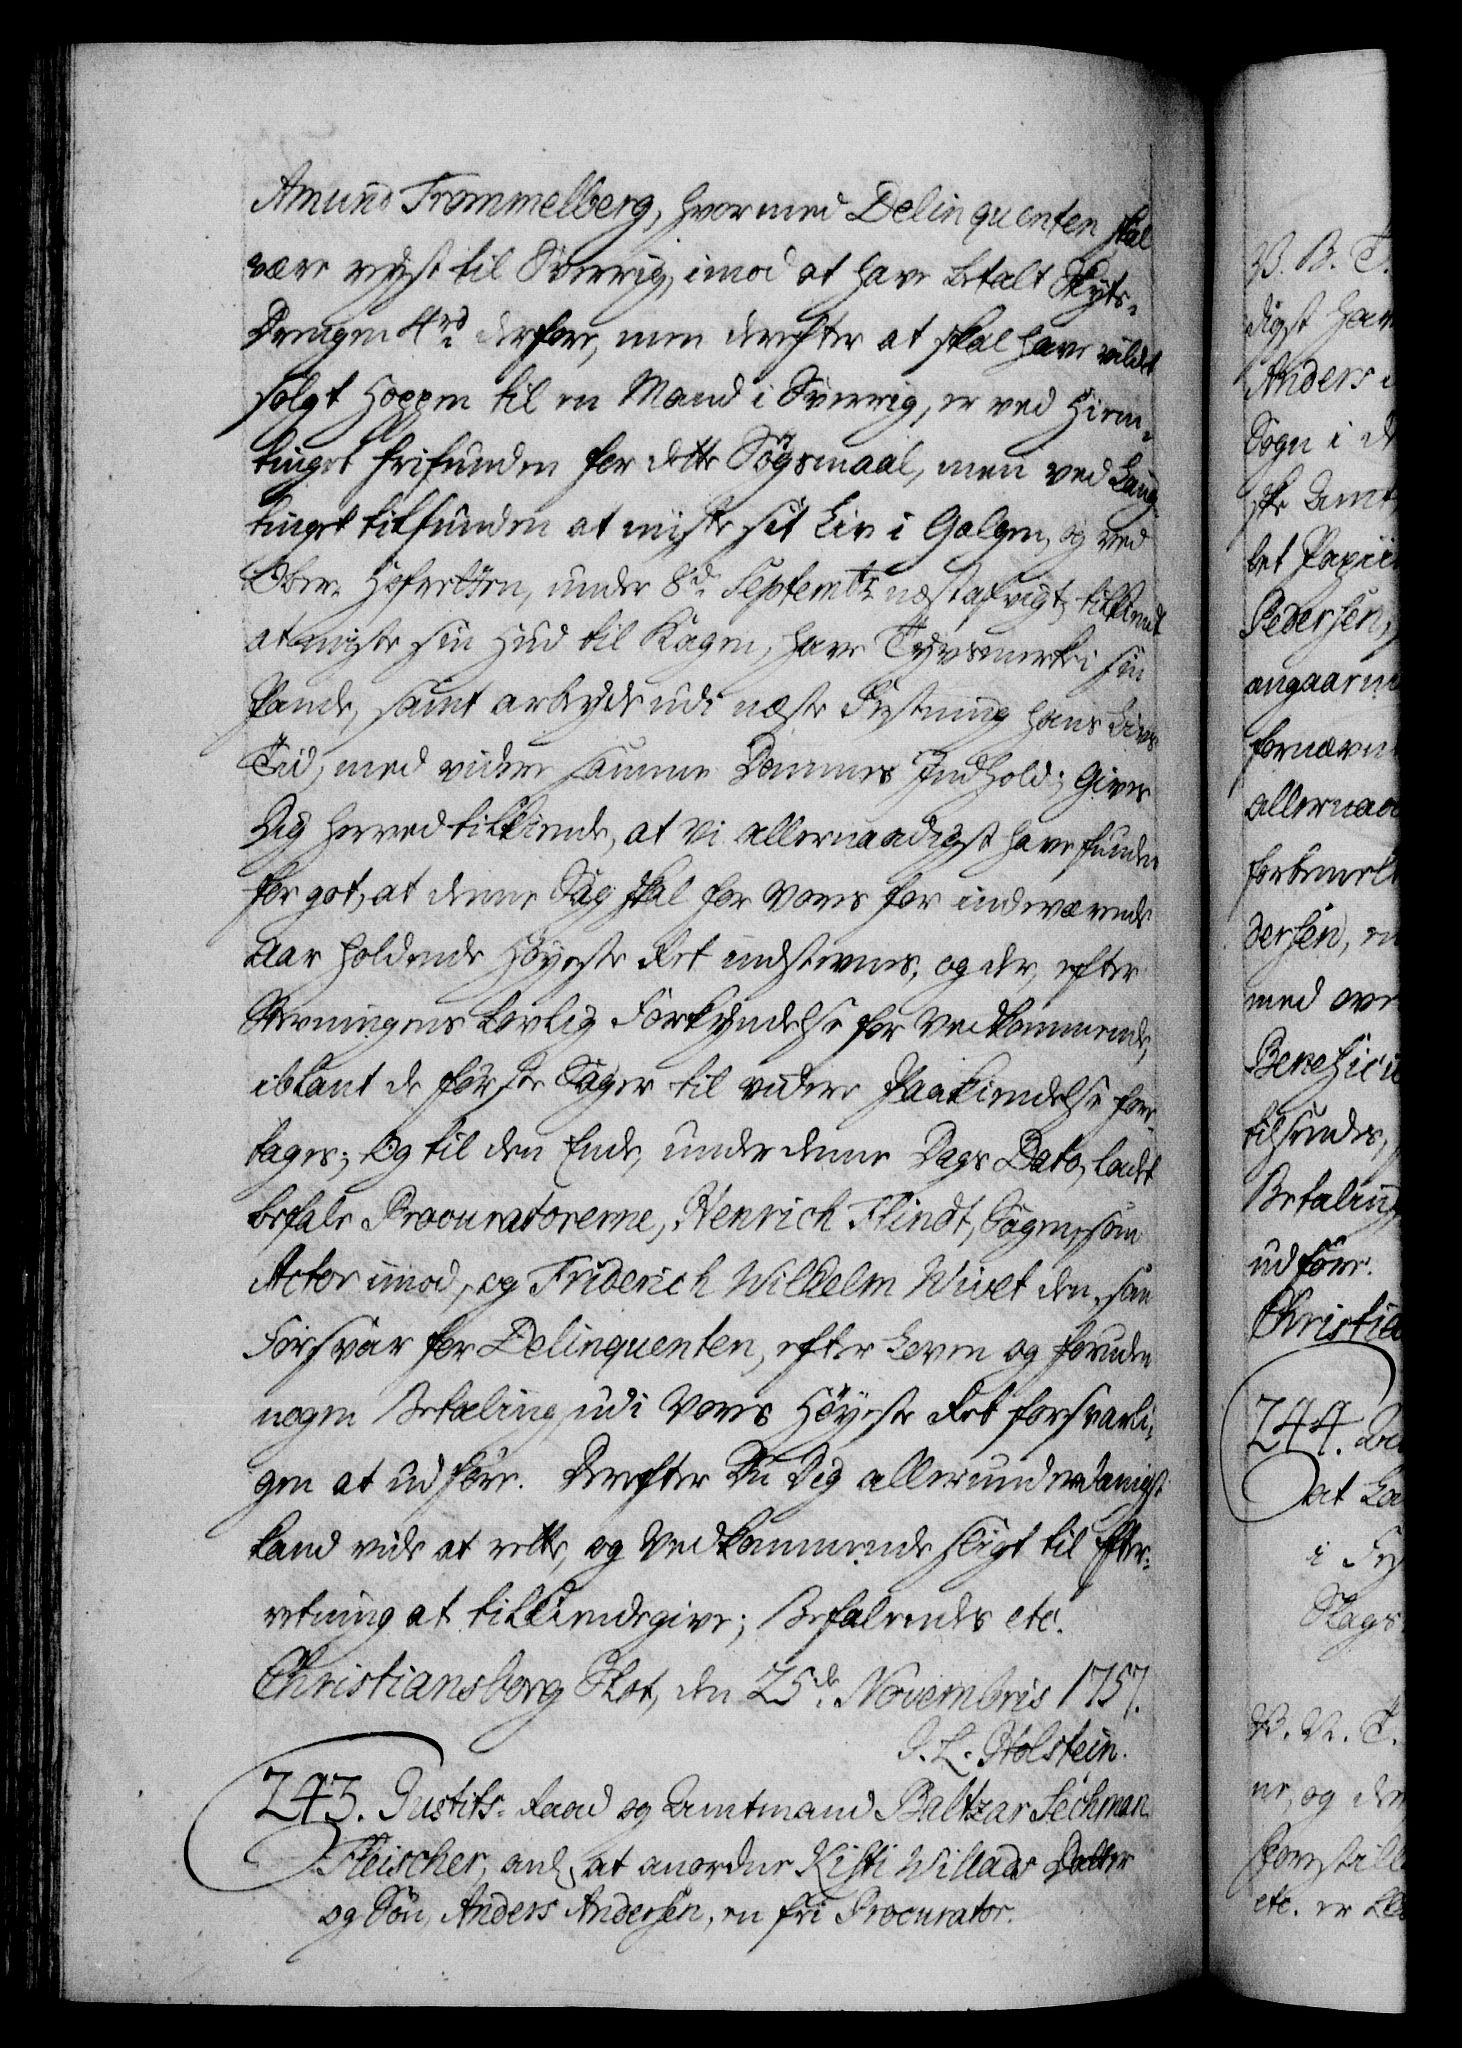 Amund Trommelberg, hvormed Delinquenten skal
være reyst til Sverrig, imod at have betalt Skyts-
Drengen 4 rd. derfore, men derefter at skal have vildet
solgt Hoppen til en Mand i Sverrig, er ved Hiem-
tinget frifunden for dette Søgsmaal, men ved Laug-
tinget tilfunden at miste sit Liv i Galgen, og ved
Ober-Hofretten, under 8de Septembr. næstafvigt, tilkiendt
at miste sin Hud til Kagen, have Tyvsmerke i sin
Pande, samt arbeyde udi næste Fæstning hans Livs
Tid, med videre samme Dommes Indhold; Gives
Dig herved tilkiende, at Vi allernaadigst have funden
for got, at denne Sag skal for Vores for indeværende
Aar holdende Høyeste Ret indstevnes, og der, efter
Stevningens lovlig Forkyndelse for Vedkommende,
iblant de første Sager til videre Paakiendelse fore-
tages; Og til den Ende, under denne Dags Dato, ladet
befale Procuratorerne, Henrich Flindt, Sagen, som
Actor imod, og Friderich Wilhelm Wivet den, som
Forsvar for Delinquenten, efter Loven og foruden
nogen Betaling, udi Vores Høyeste Ret forsvarli-
gen at udføre. Derefter Du Dig allerunderdanigst
kand vide at rette, og Vedkommende sligt til Efter-
retning at tilkiendegive; Befalendes etc.
Christiansborg Slot, den 25de Novembris 1757.
J. L. Holstein.
243. Justits-Raad og Amtmand Baltzar Sechman
Fleischer, anl. at anordne Kisti Willads Datter
og Søn, Anders Andersen, en fri Procurator.
V. B. T.
digst hav
Anders
Sogn i
ske Amt
bet Papii
Pedersen,
angaaen
fornævn
allernaa
forbemelt
dersen, en
med ove
Benefici
tilfindes,
Betaling
udføre.
Christia
244.
at La
i
Slags
V. V. T.
ne, og den
forestill
etc. er